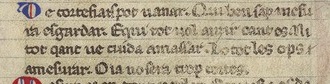 De cortesia is pot vanar. Qui ben sap mesu
ra esgardar. E qui tot vol auzir cant es. Ni
tot qant ve cuida amassar. Lo tot les ops a
amesurar. O ia no sera trop cortes.